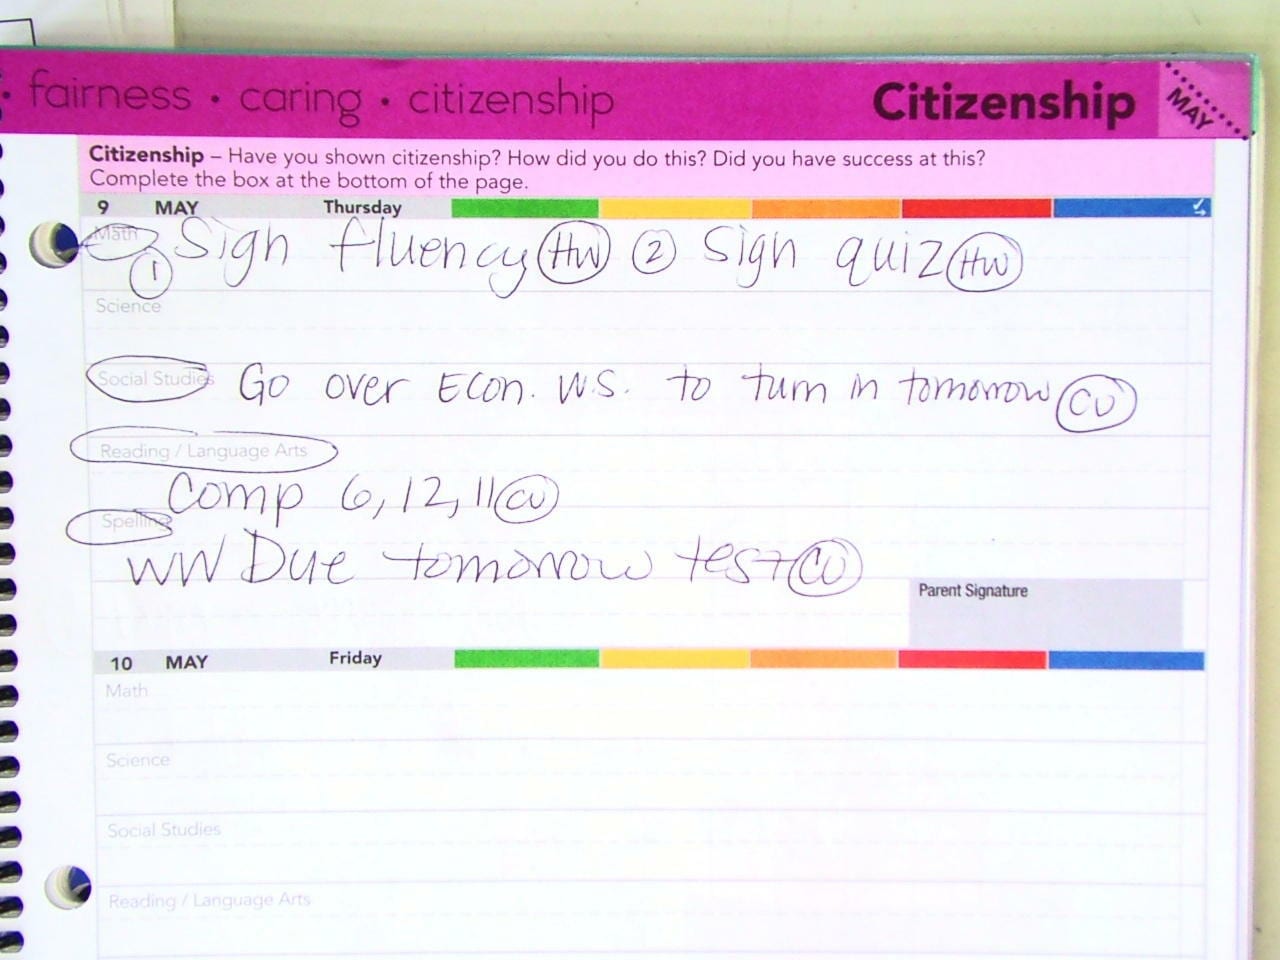 fairness • caring • citizenship Citizenship MAY
Citizenship – Have you shown citizenship? How did you do this? Did you have success at this?
Complete the box at the bottom of the page.
9 MAY Thursday
Math ① Sign fluency HW ② Sign quiz HW
Science
Social Studies Go over Econ. W.S. to turn in tomorrow CW
Reading / Language Arts
Comp 6, 12, 11 CW
Spelling
WW Due tomorrow test CW
Parent Signature
10 MAY Friday
Math
Science
Social Studies
Reading / Language Arts